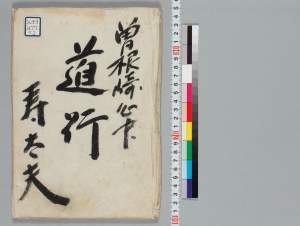 曽根崎心中
道行
寿太夫